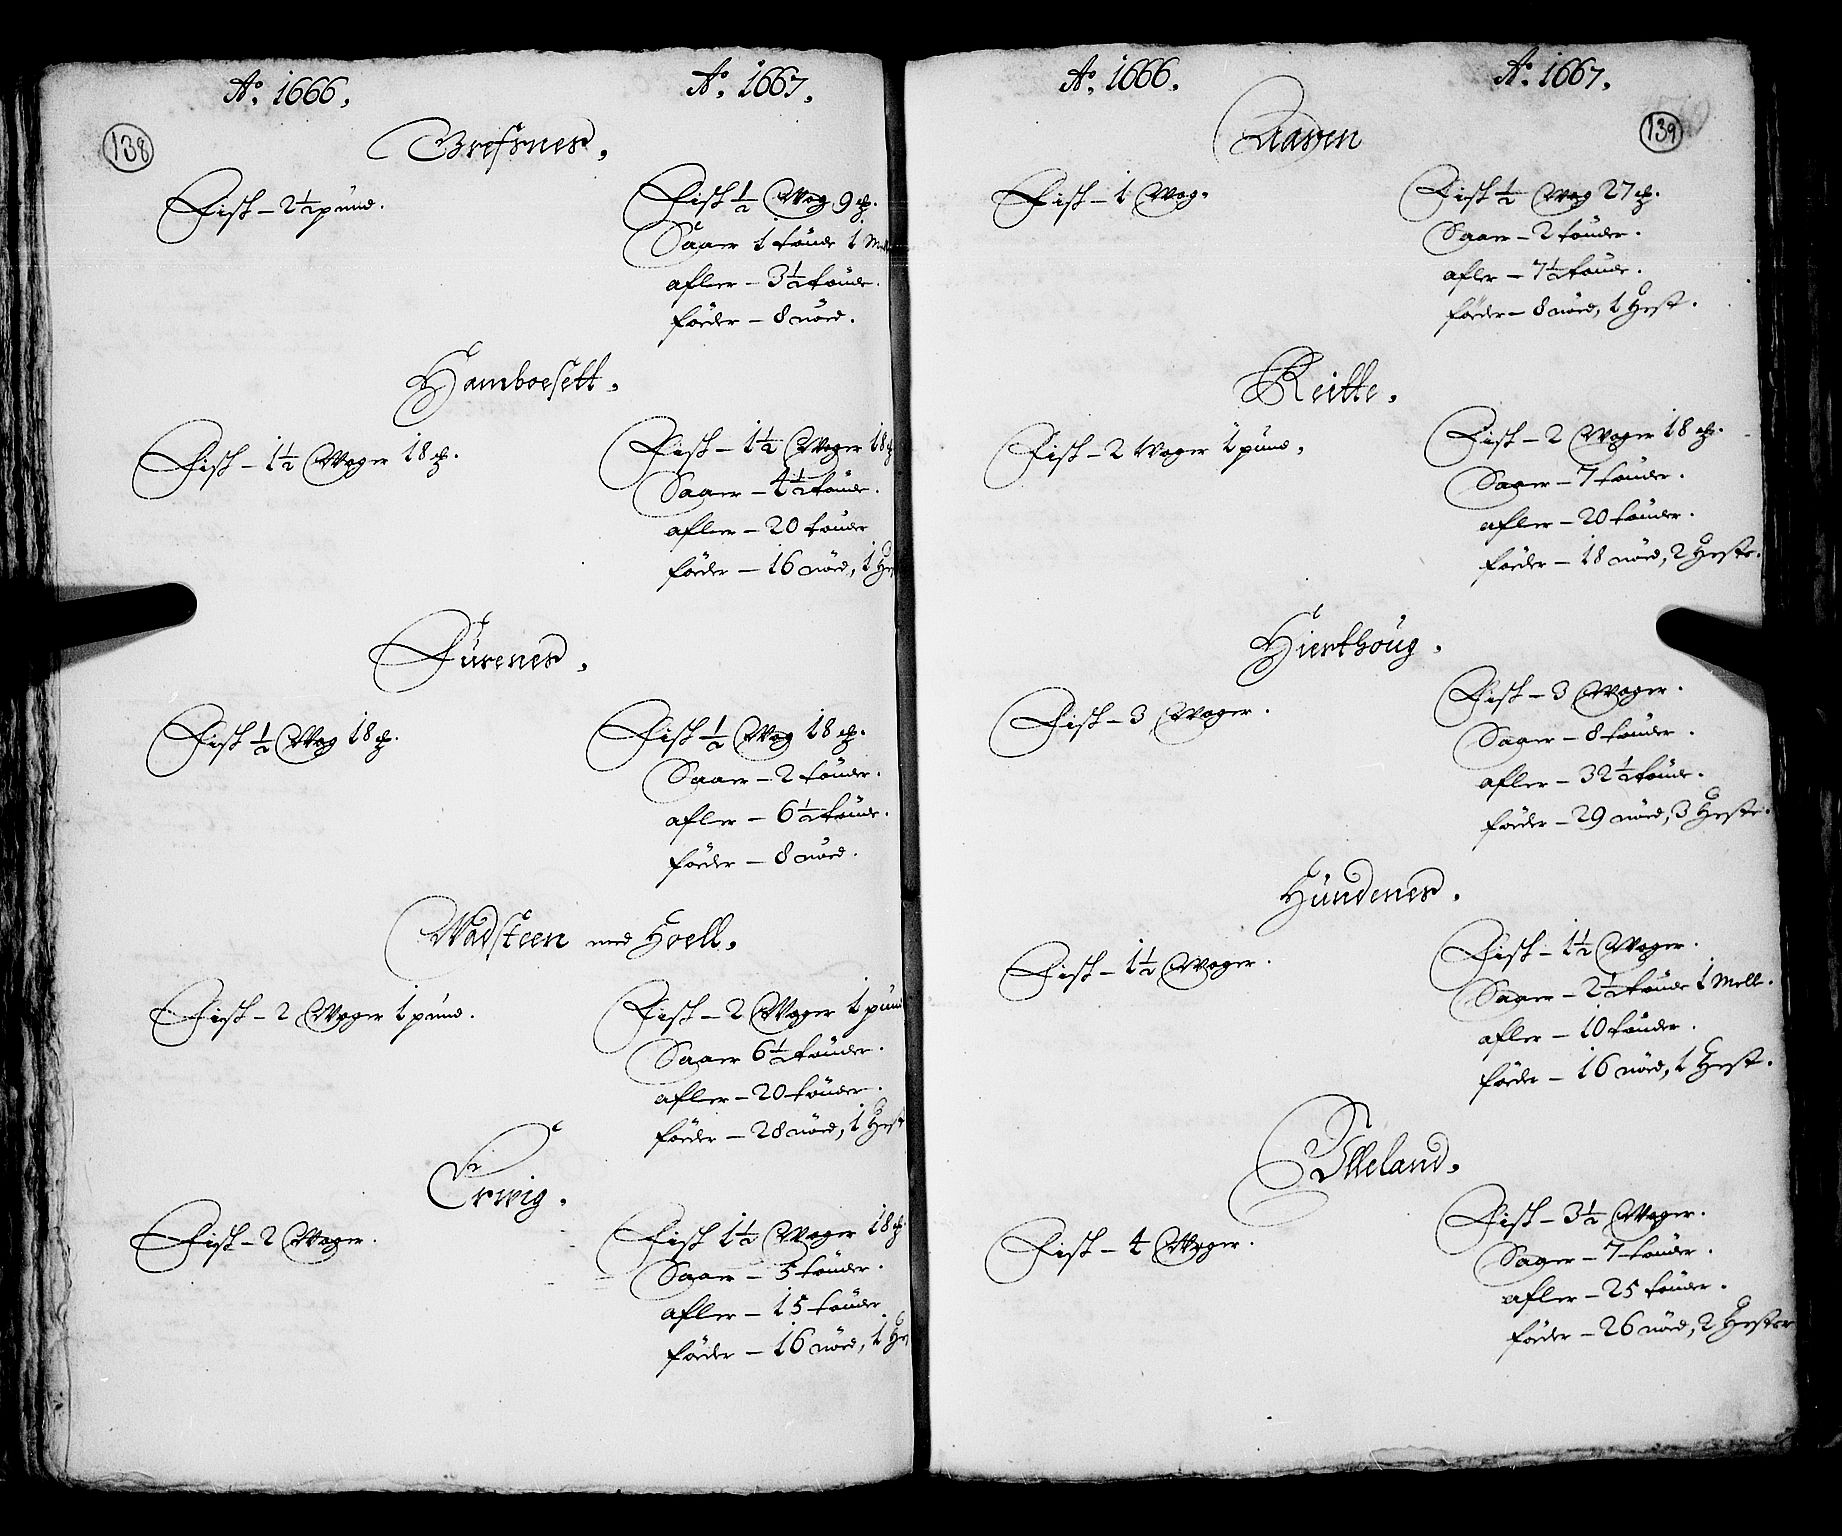 138
Aº. 1666. Aº. 1667.
Bressnes.
Fisk – 2½ pund. Fisk ½ Wog 9 ℔.
Saaer 1 tønde 1 Mell
afler – 3½ tønde.
føder – 8 nød.
Hamboesett.
Fisk – 1½ Woger 18 ℔. Fisk – 1½ Woger 18 ℔
Saaer – 4½ tønde.
afler – 20 tønder
føder – 16 nød, 1 Hes
Furenes.
Fisk ½ Wog 18 ℔. Fisk ½ Wog 18 ℔.
Saaer – 2 tønder.
afler – 6½ tønde.
føder – 8 nød.
Wadsteen med Hoell.
Fisk – 2 Woger 1 pund. Fisk – 2 Woger 1 pund
Saaer 6½ tønder.
afler – 20 tønder.
føder – 28 nød, 1 Hest
Erwig.
Fisk – 2 Woger. Fisk 1½ Woger 18 ℔.
Saaer – 5 tønder.
afler – 15 tønder
føder – 16 nød, 1 Hes
139
Aº. 1666. Aº. 1667.
Aasen
Fisk – 1 Wog. Fisk ½ Wog 27 ℔.
Saaer – 2 tønder.
afler – 7½ tønde.
føder – 8 nød, 1 Hest.
Reitte.
Fisk – 2 Woger 1 pund. Fisk – 2 Woger 18 ℔.
Saaer – 7 tønder.
afler – 20 tønder.
føder – 18 nød, 2 Heste.
Hierthoug.
Fisk – 3 Woger. Fisk – 3 Woger.
Saaer – 8 tønder.
afler – 32½ tønde.
føder – 29 nød, 3 Heste.
Hundenes.
Fisk – 1½ Woger. Fisk – 1½ Woger.
Saaer – 2½ tønde 1 Mell.
afler – 10 tønder.
føder – 16 nød, 1 Hest.
Ytteland.
Fisk – 4 Woger. Fisk – 3½ Woger.
Saaer – 7 tønder.
afler – 25 tønder.
føder – 26 nød, 2 Hester